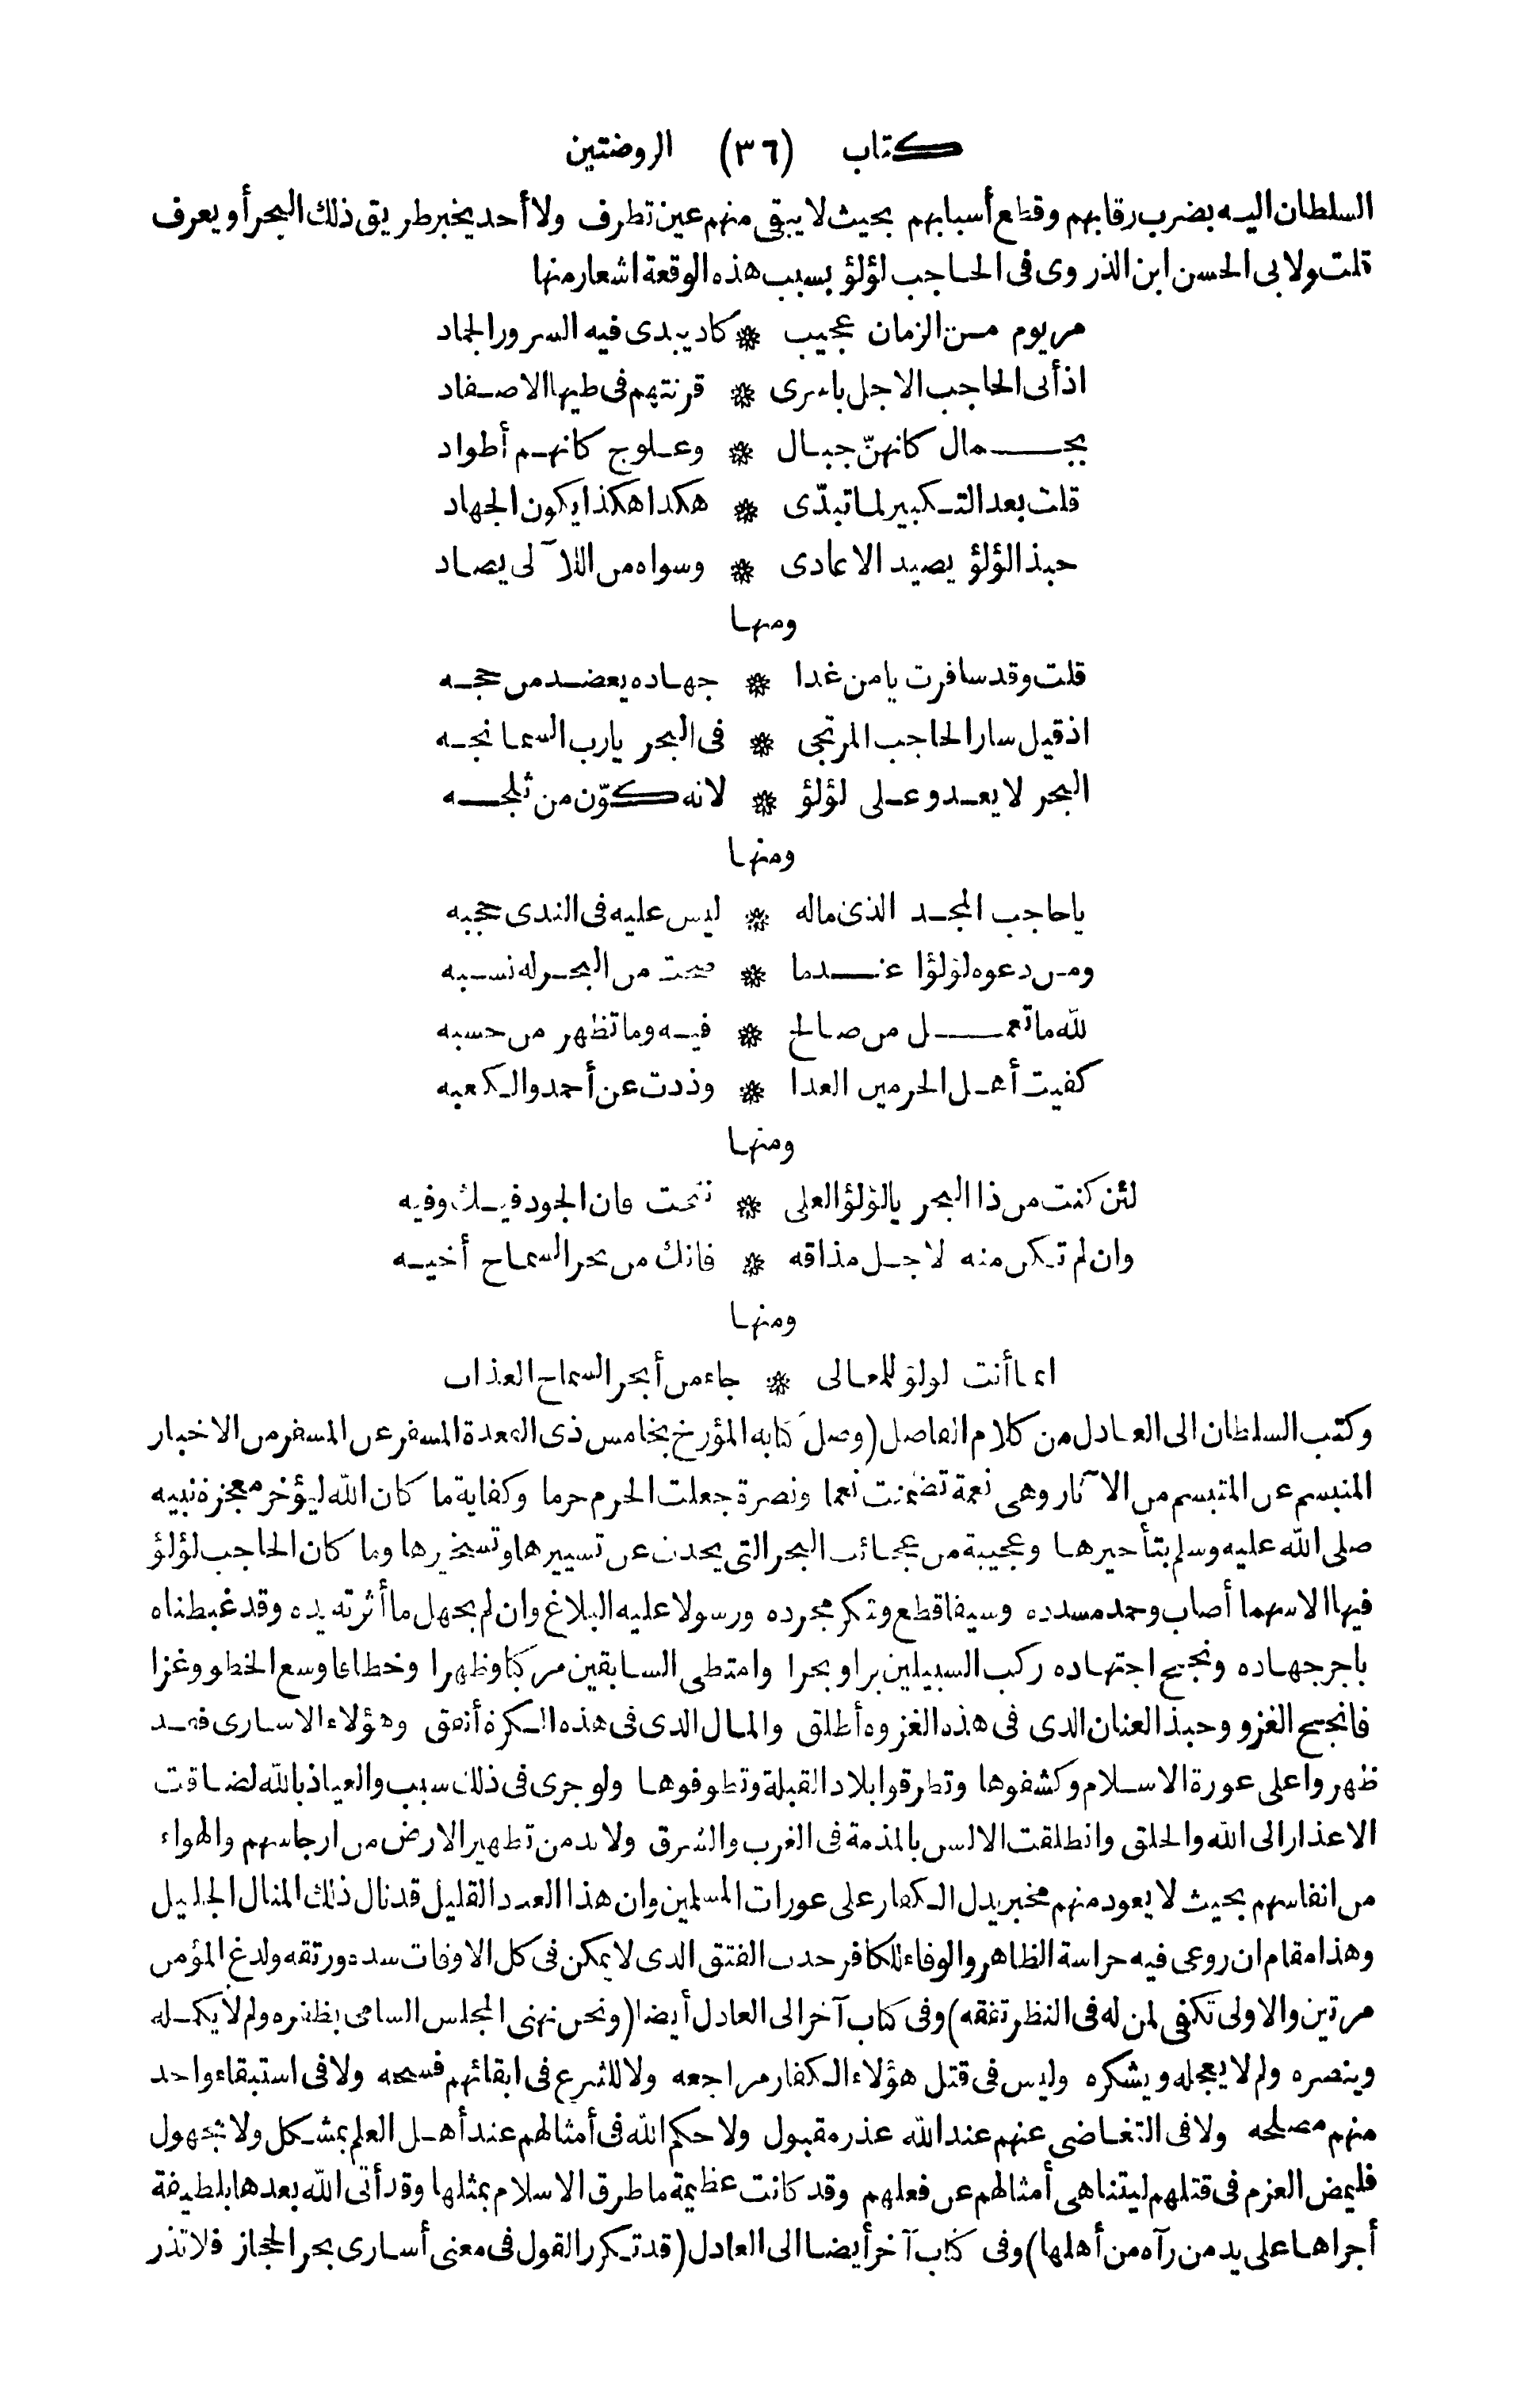 كتاب (٣٦) الروضتين
السلطان اليه بضرب رقابهم وقطع أسبابهم بحيث لا يبقى منهم عين تطرف ولا أحد يخبر طريق ذلك البحر أو يعرف
قلت ولابى الحسن ابن الذروى فى الحاجب لؤلؤ بسبب هذه الوقعة اشعار منها
مر يوم من الزمان عجيب * كاد يبدى فيه السرور الجماد
اذ أتى الحاجب الاجل باسرى * قرنتهم فى طيها الاصفاد
بجمال كانهنّ جبال * وعلوج كانهم أطواد
قلت بعد التكبير لما تبدّى * هكذا هكذا يكون الجهاد
حبذا لؤلؤ يصيد الاعادى * وسواه من اللآلى يصاد
ومنها
قلت وقد سافرت يا من غدا * جهاده يعضد من حجه
اذ قيل سار الحاجب المرتجى * فى البحر يارب السما نجه
البحر لا يعدو على لؤلؤ * لانه كوّن من ثلجه
ومنها
يا حاجب المجد الذى ماله * ليس عليه فى الندى حجبه
ومن دعوه لؤلؤا عندما * صحت من البحر له نسبه
لله ما تعمل من صالح * فيه وما تظهر من حسبه
كفيت أهل الحرمين العدا * وذدت عن أحمد والكعبه
ومنها
لئن كنت من ذا البحر يا لؤلؤ العلى * نتجت فان الجود فيك وفيه
وان لم تكن منه لاجل مذاقه * فانك من بحر السماح أخيه
ومنها
انما أنت لؤلؤ للمعالى * جاء من أبحر السماح العذاب
وكتب السلطان الى العادل من كلام الفاضل (وصل كتابه المؤرخ بخامس ذى القعدة المسفر عن المسفر من الاخبار
المتبسم عن المتبسم من الآثار وهى نعمة تضمنت نعما ونصرة جعلت الحرم حرما وكفاية ما كان الله ليؤخر معجزة نبيه
صلى الله عليه وسلم بتأخيرها وعجيبة من عجائب البحر التى يحدث عن تسييرها وتسخيرها وما كان الحاجب لؤلؤ
فيها الا سهما أصاب وحمد مسدده وسيفا قطع وشكر مجرده ورسولا عليه البلاغ وان لم يجهل ما أثرته يده وقد غبطناه
باجر جهاده ونجح اجتهاده ركب السبيلين برا وبحرا وامتطى السابقين مركبا وظهرا وخطا فاوسع الخطو وغزا
فانجح الغزو وحبذا العنان الذى فى هذه الغزوه أطلق والمال الذى فى هذه الكرة أنفق وهؤلاء الاسارى فقد
ظهروا على عورة الاسلام وكشفوها وتطرقوا بلاد القبلة وتطوفوها ولو جرى فى ذلك سبب والعياذ بالله لضاقت
الاعذار الى الله والخلق وانطلقت الالسن بالمذمة فى الغرب والشرق ولا بد من تطهير الارض من ارجاسهم والهواء
من انفاسهم بحيث لا يعود منهم مخبر يدل الكفار على عورات المسلمين وان هذا العدد القليل قد نال ذلك المنال الجليل
وهذا مقام ان روعى فيه حراسة الظاهر والوفاء للكافر حدث الفتق الذى لا يمكن فى كل الاوقات سده ورتقه ولدغ المؤمن
مرتين والاولى تكفى لمن له فى النظر تفقه) وفى كتاب آخر الى العادل أيضا (ونحن نهنى المجلس السامى بظفره ولم لا يكمله
وينصره ولم لا يعجله ويشكره وليس فى قتل هؤلاء الكفار مراجعه ولا للشرع فى ابقائهم فسحه ولا فى استبقاء واحد
منهم مصلحه ولا فى التغاضى عنهم عند الله عذر مقبول ولا حكم الله فى أمثالهم عند أهل العلم بمشكل ولا مجهول
فليمض العزم فى قتلهم ليتناهى أمثالهم عن فعلهم وقد كانت عظيمة ما طرق الاسلام بمثلها وقد أتى الله بعدها بلطيفة
أجراها على يد من رآه من أهلها) وفى كتاب آخر أيضا الى العادل (قد تكرر القول فى معنى أسارى بحر الحجاز فلا تذر